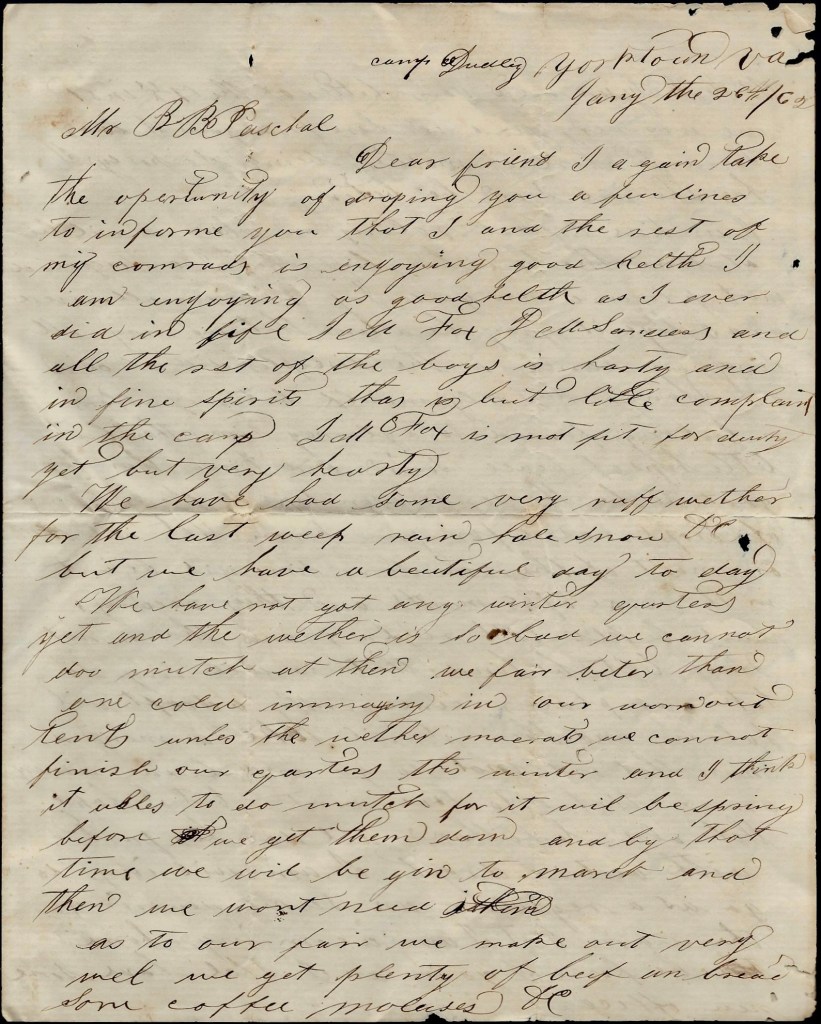 camp Dudley Yorktown va
Jany the 26th/62
Mr B B Paschal
Dear friend I again take
the opertunity of droping you a few lines
to informe you that I and the rest of
my comrads is engoying good helth I
am engoying as good helth as I ever
did in life Fox and
all the rst of the boys is harty and
in fine spirits thar is but little complain
in the camp Fox is not fit for duty
yet but very hearty
We have had some very ruff wether
for the last week rain hale snow &C
but we have a beautiful day to day
We have not got any winter quarters
yet and the wether is so bad we cannot
doo mutch at them we fair beter than
one cold immagin in our wornout
tents unles the wether moerats we cannot
finish our quarters this winter and I think
it usles to do mutch for it wil be spring
before we get them don and by that
time we wil be gin to march and
then we wont need
as to our fair we make out very
wel we get plenty of beef an bread
some coffee molases &C